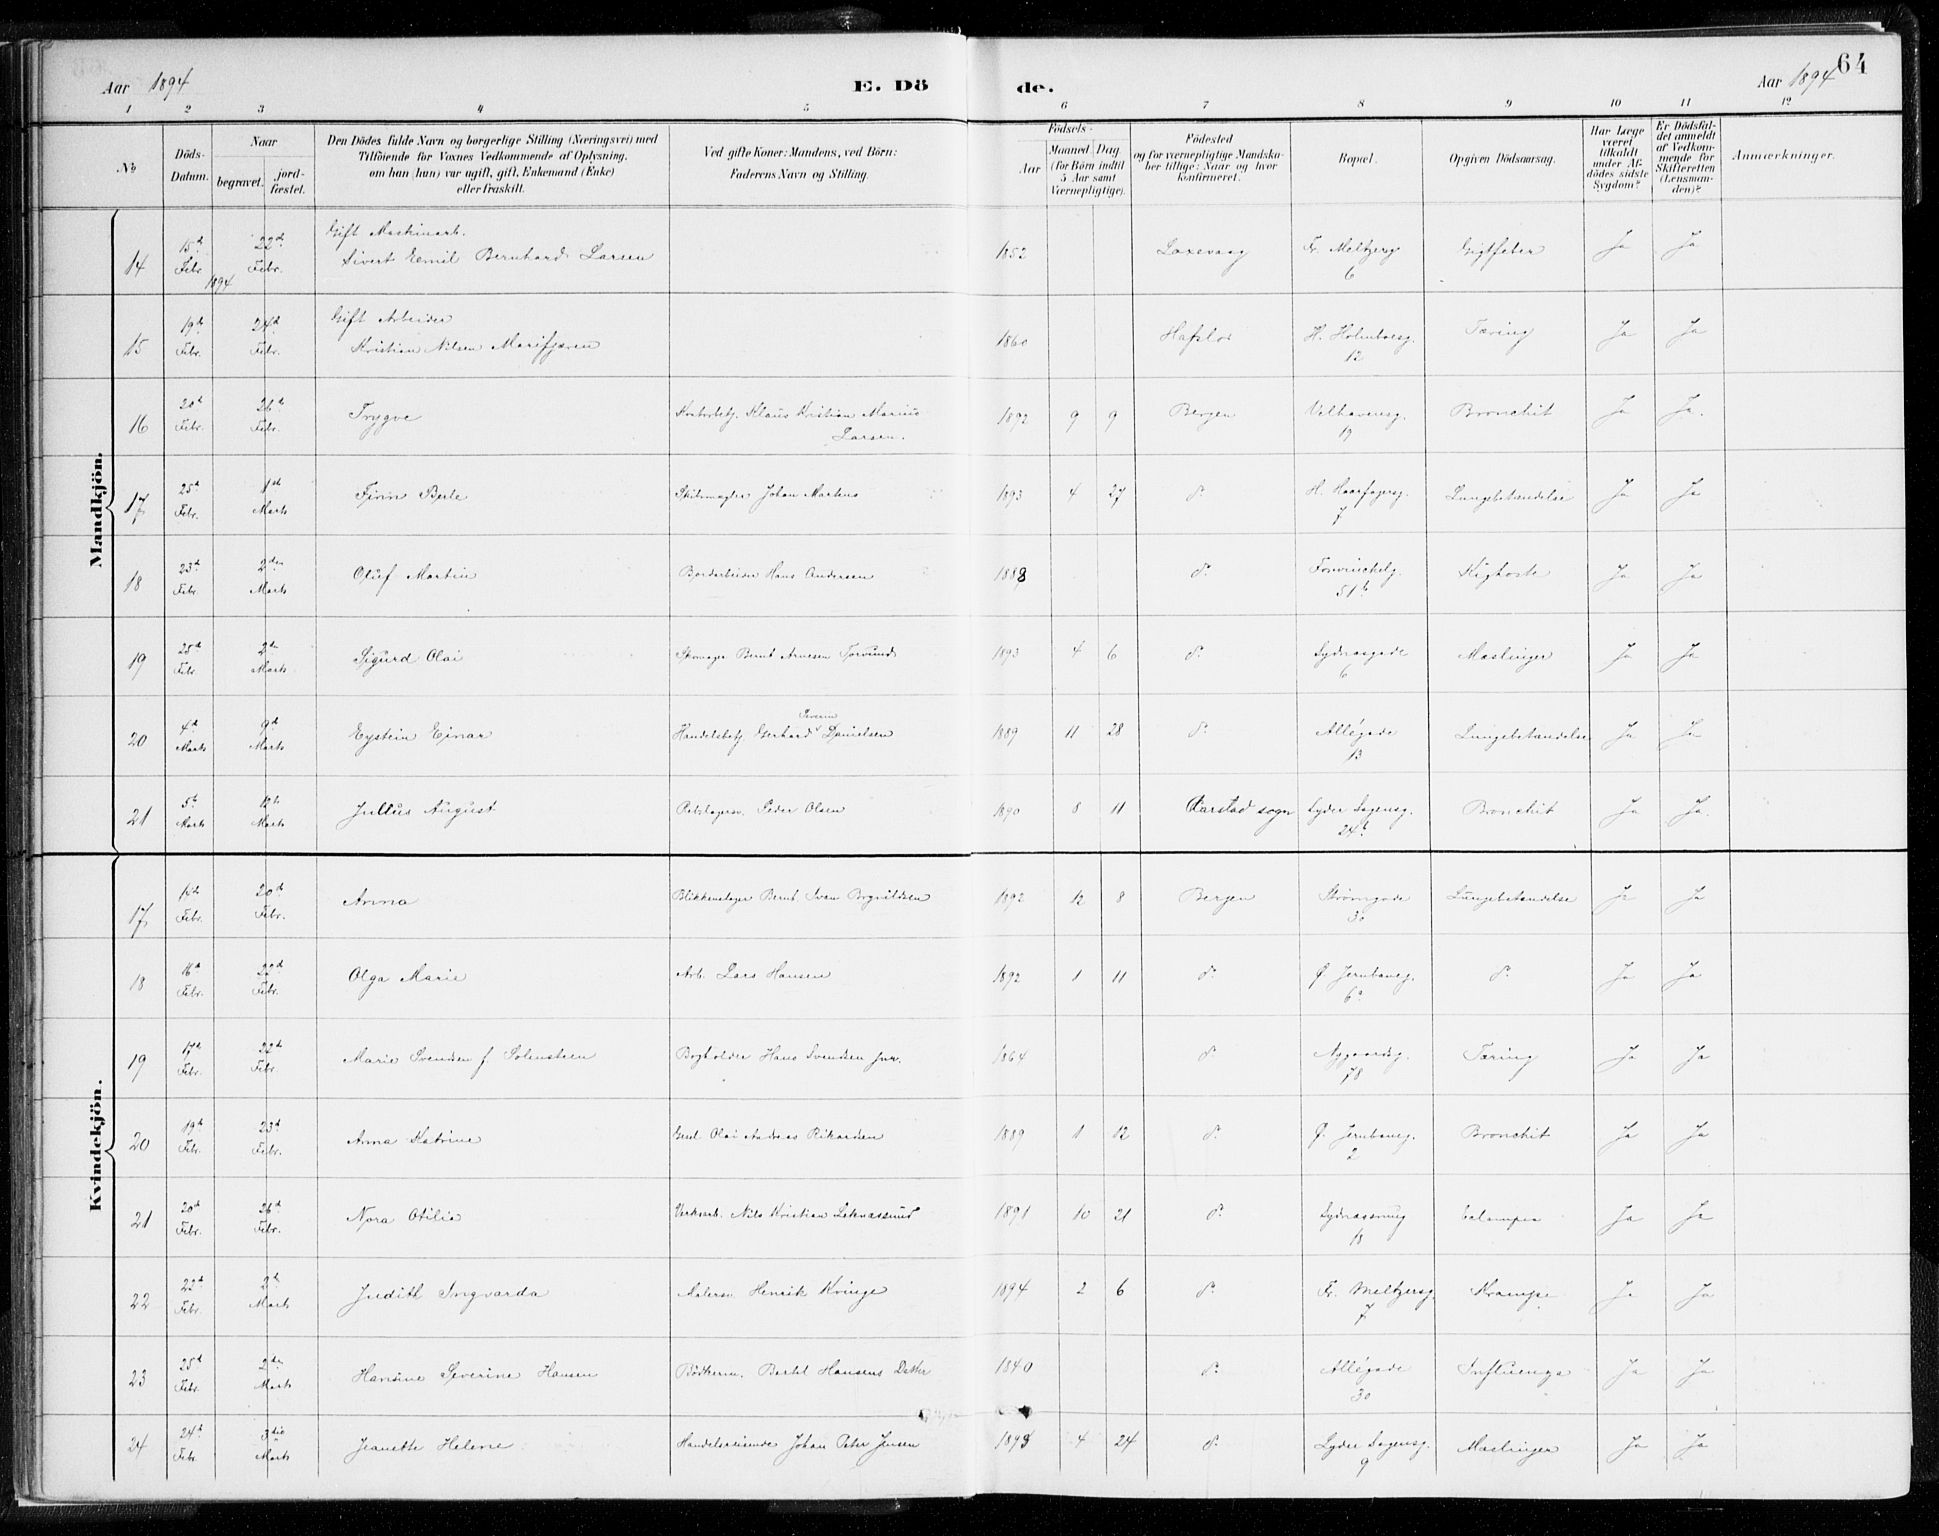 64
Aar 1894 E. Dö de. Aar 1894
1 2 3 4 5 6 7 8 9 10 11 12
No
Döds-Datum.
Naar begravet. jordfæstet.
Den Dödes fulde Navn og borgerlige Stilling (Næringsvei) med
Tilföiende for Voxnes Vedkommende af Oplysning,
om han (hun) var ugift, gift, Enkemand (Enke)
eller fraskilt.
Ved gifte Koner: Mandens, ved Börn:
Faderens Navn og Stilling.
Födsels-
Aar Maaned Dag
(for Börn indtil
5 Aar samt
Værnepligtige).
Födested
og for værnepligtige Mandskaber tillige: Naar og hvor
konfirmeret.
Bopæl.
Opgiven Dödsaarsag.
Har Læge
været
tilkaldt
under Afdödes sidste
Sygdom?
Er Dödsfaldet anmeldt
af Vedkommende for
Skifteretten
(Lensmanden)?
Anmærkninger.
Mandkjön.
14 15d Febr. 1894 22d Febr. Gift Maskinarb. Sivert Emil Bernhard Larsen 1852 Laxevaag Fr. Meltzersg. 6 Gigtfeber Ja Ja
15 19d Febr. 24d Febr. Gift Arbeider Kristian Nilsen Marifjæren 1860 Hafslo H. Holmboesg. 12 Tæring Ja Ja
16 20d Febr. 26d Febr. Trygve Kontorbetj. Klaus Kristian Marius Larsen. 1892 9 9 Bergen Velhavensg. 19 Bronchit Ja Ja.
17 25d Febr. 1st Marts Finn Berle Skibsmægler Johan Martens 1893 4 27 do H. Haarfagersg. 7 Lungebetændelse Ja Ja
18 23d Febr. 2den Marts Oluf Martin Jordarbeider Hans Andersen 1888 do Fosvinckelg. 51b Kighoste Ja Ja
19 25d Febr. 2den Marts Sigurd Olai Skomager Bernt Arnesen Torvund 1893 4 6 do Sydnæsgade 6 Mæslinger Ja Ja
20 4d Marts 9d Marts Eystein Einar Handelsbetj. Gerhard Severin Danielsen 1889 11 28 do Allégade 13 Lungebetændelse Ja Ja
21 5d Marts 12d Marts Julius August Rebslagersv. Peder Olsen 1890 8 11 Aarstad sogn Lyder Sagensg. 24b Bronchit Ja Ja.
Kvindekjön.
17 Febr. 20d Febr. Anna Blikkenslager Bernt Sven 1892 12 8 Bergen Strømgade 30 Lungebetændelse Ja Ja
18 16d Febr. 22d Febr. Olga Marie Arb. Lars Hansen 1892 1 11 do Ø Jernbaneg. 6a do Ja Ja
19 17d Febr. 22d Febr. Marie Svendsen f. Solensteen Bogholder Hans Svendsen jnr. 1864 do Nygaardsg. 78 Tæring Ja Ja
20 19d Febr. 23d Febr. Anna Katrine Olai Andreas Rikardsen 1889 1 12 do Ø. Jernbaneg. 2 Bronchit Ja Ja
21 20d Febr. 26d Febr. Nora Otilie Verksarb. Nils Kristian Leknæssund 1891 10 21 do Sydnæssmug 18 Eclampsi Ja Ja
22 22d Febr. 2d Marts Judith Ingvarda Malersv. Henrik Kvinge 1894 2 6 do Fr. Meltzersg. 7 Krampe Ja Ja
23 25d Febr. 2den Marts Hansine Severine Hansen Bødkerm. Bertel Hansens Datter 1840 do Allégade 30 Influenza Ja Ja
24 24d Febr. 3die Marts Jeanette Helene Handelsreisende Johan Peter Jensen 1893 4 24 do Lyder Sagensg. 9 Mæslinger Ja Ja